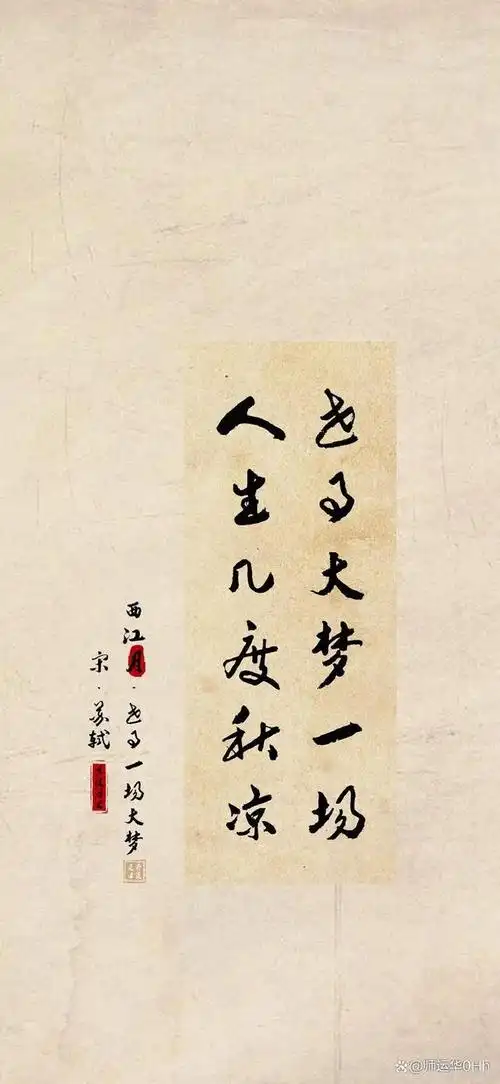 世事大梦一场
人生几度秋凉
西江月·世事一场大梦
宋·苏轼
@师运华0Hh